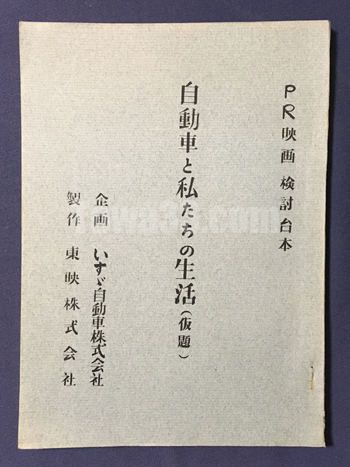 PR映画 検討台本
自動車と私たちの生活(仮題)
企画 いすゞ自動車株式会社
製作 東映株式会社